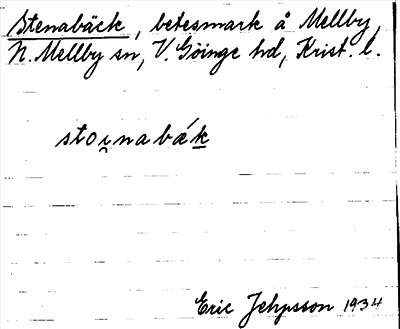 Stenabäck, betesmark å Mellby,
N. Mellby sn, V. Göinge hd, Krist. l.
stoi̯nabák
Eric Jehpsson 1934